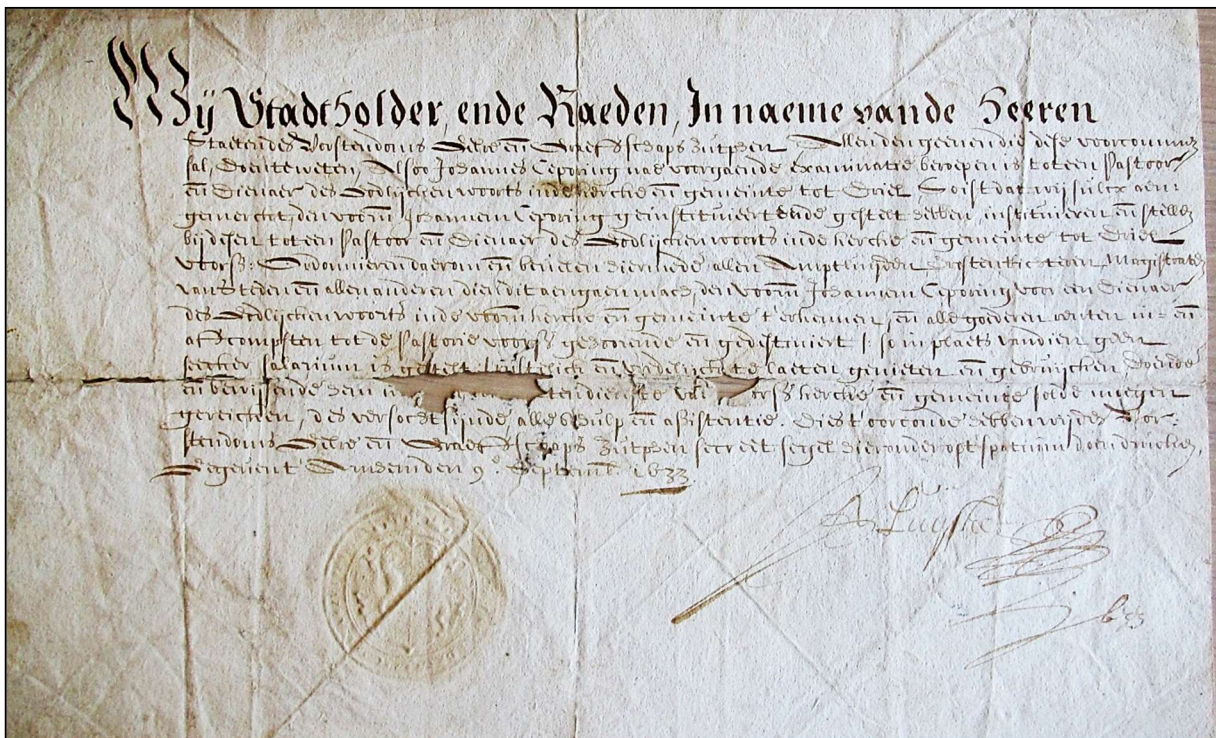 Wij Stadtholder, ende Raeden, In naeme vande Heeren
Staeten des Vorstendoms Gelre eñ Graefschaps Zutphen Allen den geenen die dese voorcommen
sal, doen te weten, Alsoo Johannes Ceporinus nae voorgaende examinatie beroepen is tot een Pastoor
eñ Dienaer des Godlijcken woorts inde kerche eñ gemeinte tot Driel, Soist dat wij sulcx aen:
gemerckt, den voorñ Johannem Ceporinū geinstitueert ende gestelt hebben, institueren eñ stellen
bij desen tot een Pastoor eñ Dienaer des Godlijcken woorts inde kerche eñ gemeinte tot Driel
voorsz: Ordonnieren daerom eñ bevelen hiermede, allen Amptluijden Richteren Magistraten
van Steden eñ allen anderen dien dit aengaen mach, den voorñ Johannem Ceporinū voor een Dienaer
des Godlijcken woorts inde voorñ kerche eñ gemeinte t'erkennen, eñ alle goederen renten in: eñ
opcompsten tot de Pastorie voorsz gehorende eñ gedestineert so in plaets van dien geen
seecker salarium is gestelt eñ te laeten genieten eñ gebruijcken, doende
eñ bewijsende hem ten dienste van voorsz kerche eñ gemeinte solde mogen
gereichen, des versocht sijnde, alle behulp eñ assistentie. Des t'oorconde hebben wij des Vor:
stendoms Gelre eñ Graefschaps Zutphen secreet segel hieronder opt spatium doen drucken,
Gegeven t'Arnhem den 9. Septemb. 1633